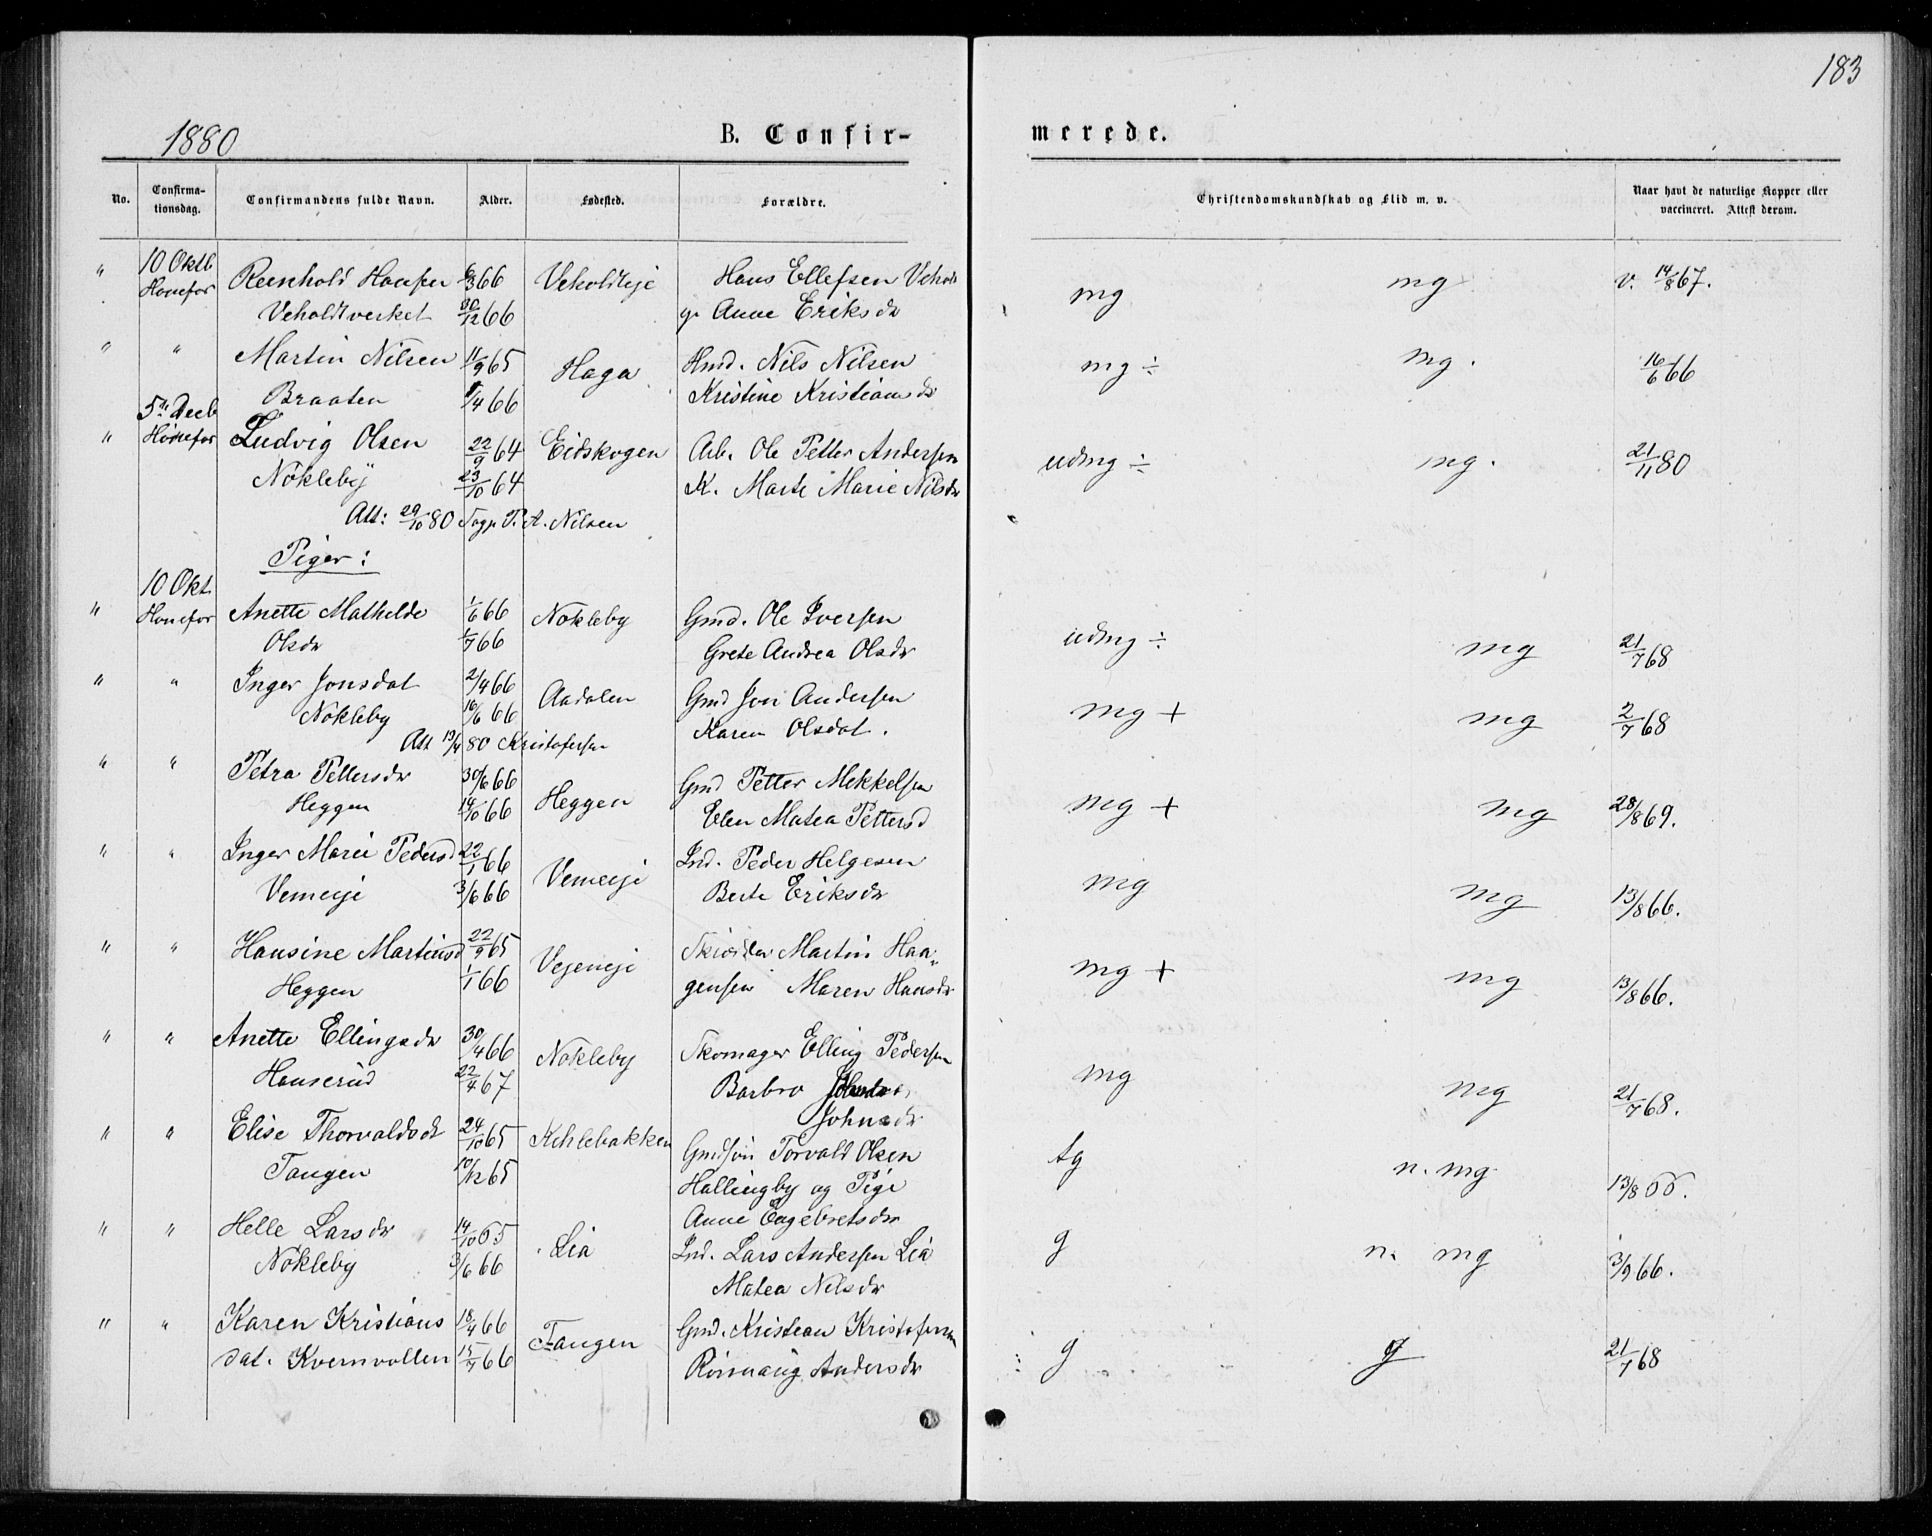 183
1880
B. Confir-
merede.
No.
Confirma-
tionsdag.
Confirmandens fulde Navn.
Alder.
Fødested.
Forældre.
Christendomskundskab og Flid m. v.
Naar havt de naturlige Kopper eller
vaccineret. Attest derom.
" 10 Oktb Reinhold Hansen 6/3 66 Veholdteje Hans Ellefsen Vehol mg mg v. 14/8 67.
Honefos Veholdtverket 30/12 66 g. Anne Eriksdr
" " Martin Nilsen 11/9 65 Haga Hmd. Nils Nilsen mg ÷ mg. 16/6 66
Braaten 1/4 66 Kristine Kristiansdr
5te Decb
" Hönefos Ludvig Olsen 22/9 64 Eidskogen Arb. Ole Petter Andersen udmg ÷ mg. 21/11 80
Nökleby 23/10 64 K. Marte Marie Nilsdr
Att: 29/10 80 Sogp T. A. Nilsen
Piger:
10 Okt
" Honefos Anette Mathilde 1/6 66 Nokleby Gmd. Ole Iversen udmg ÷ mg 21/7 68
Olsdr 1/7 66 Grete Andrea Olsdr
" " Inger Jonsdat 2/4 66 Aadalen Gmd Jon Andersen mg + mg 2/7 68
Nökleby 10/6 66 Karen Olsdat.
Att 19/4 80 Kristofersen
" " Petra Pettersdr 30/6 66 Heggen Gmd Petter Mekkelsen mg + mg 28/8 69.
Heggen 14/10 66 Elen Matea Pettersd
" " Inger Marie Pedersd 22/1 66 Vemeeje Ind. Peder Helgesen mg mg 13/8 66.
Vemeeje 3/6 66 Berte Eriksdr
" " Hansine Martinsd 22/9 65 Vejeneje Skrædder Martin Haa- mg + mg 13/8 66.
Heggen 1/1 66 gensen Maren Hansdr
" " Anette Ellingsdr 30/4 66 Nokleby Skomager Elling Pedersen mg mg 21/7 68.
Hanserud 22/4 67 Barbro
Johnsdr
" " Elise Thorvaldsdt 24/10 65 Kihlebakken Gmdsön Torvald Olsen tg n. mg 13/8 66.
Tangen 10/12 65 Hallingby og Pige
Anne Engebretsdr
" " Helle Larsdr 14/10 65 Lia Ind. Lars Andersen Lia g n. mg 3/9 66.
Nökleby 3/6 66 Matea Nilsdr
" " Karen Kristians 18/4 66 Tangen Gmd. Kristian Kristofersen g g 21/7 68
dat. Kvernvollen 15/7 66 Andersdr